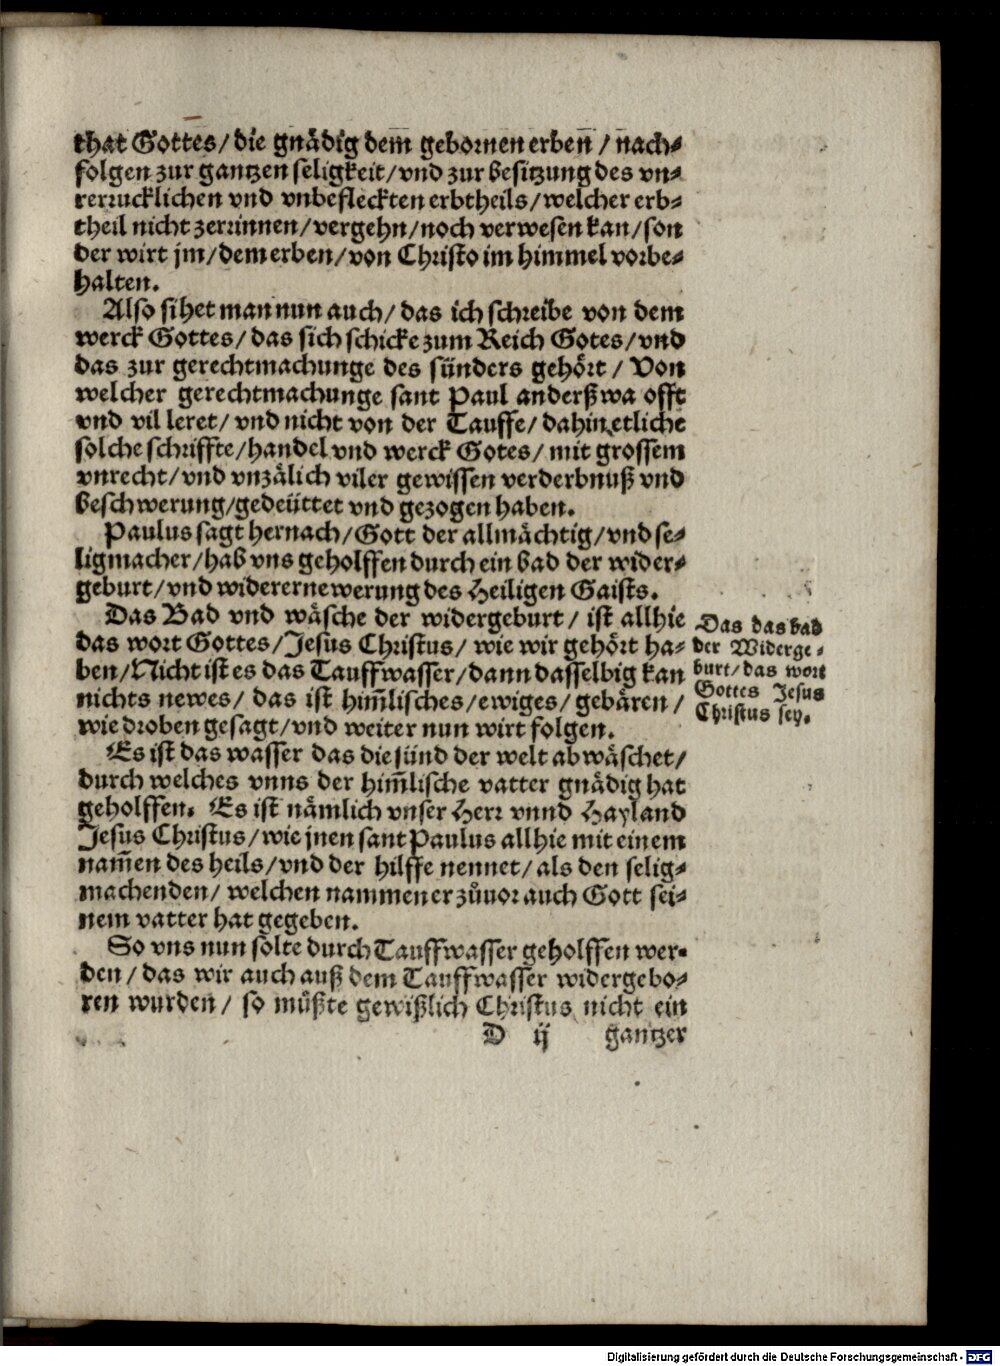 that Gottes/ die gnådig dem̅ gebornen erben̅ / nach⸗
folgen zur gantzen seligkeit/ vnd zur besitzung des vn⸗
rerrucklichen vnd vnbefleckten erbtheils/ welcher erb⸗
theil nicht zerrinnen/ vergehn/ noch verwesen kan/ son
der wirt jm/ dem erben/ von Christo im himmel vorbe⸗
halten.
Also sihet man nun auch/ das ich schreibe von dem
werck Gottes/ das sich schicke zum Reich Gotes/ vnd
das zur gerechtmachunge des sünders gehört / Von
welcher gerechtmachunge sant Paul anderßwa offt
vnd vil leret/ vnd nicht von der Tauffe/ dahin etliche
solche schriffte/ handel vnd werck Gotes/ mit grossem
vnrecht/ vnd vnzålich viler gewissen verderbnuß vnd
beschwerung/ gedeüttet vnd gezogen haben.
Paulus sagt hernach/ Gott der allmåchtig/ vnd se⸗
ligmacher/ hab vns geholffen durch ein bad der wider⸗
geburt/ vnd widerernewerung des Heiligen Gaists.
Das Bad vnd wåsche der widergeburt/ ist allhie
das wort Gottes/ Jesus Christus/ wie wir gehört ha⸗
ben/ Nicht ist es das Tauffwasser/ dann dasselbig kan
nichts newes/ das ist him̅lisches/ ewiges/ gebåren /
wie droben gesagt/ vnd weiter nun wirt folgen.
Das das bad
der Widerge⸗
burt/ das wort
Gottes Jesus
Christus sey.
Es ist das wasser das die sünd der welt abwåschet/
durch welches vnns der him̅lische vatter gnådig hat
geholffen. Es ist nåmlich vnser Herr vnnd Hayland
Jesus Christus/ wie jnen sant Paulus allhie mit einem
nam̅en des heils/ vnd der hilffe nennet/ als den selig⸗
machenden/ welchen nammen er zůuor auch Gott sei⸗
nem vatter hat gegeben.
So vns nun solte durch Tauffwasser geholffen wer⸗
den/ das wir auch auß dem Tauffwasser widergebo⸗
ren wurden/ so müßte gewißlich Christus nicht ein
D ij gantzer
Digitalisierung gefördert durch die Deutsche Forschungsgemeinschaft - DFG